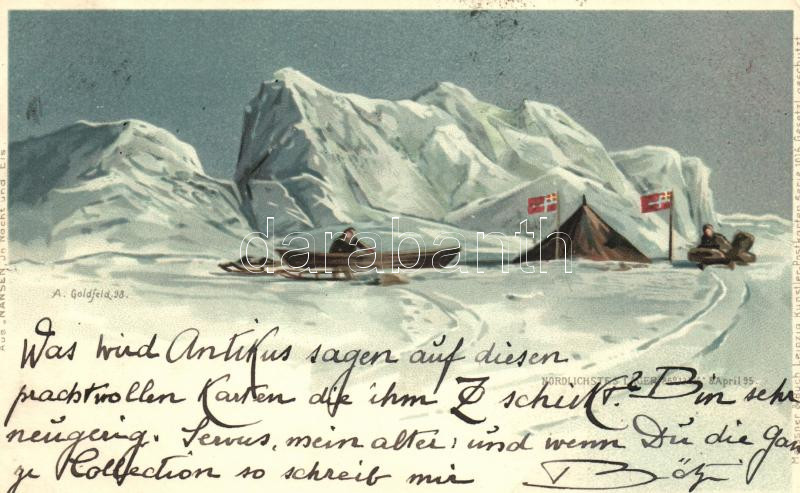 Aus "NANSEN, In Nacht und Eis."
Meissner & Buch, Leipzig, Künstler-Postkarten Serie 1016 Gesetzl. geschützt
darabanth
A. Goldfeld. 98.
NÖRDLICHSTES LAGER 8 April 95.
Was wird Antikus sagen auf diesen
prachtvollen Karten die ihm Z schickt? Bin sehr
neugerig. Servus, mein alter; und wenn Du die Gan
ze Collection so schreib mir